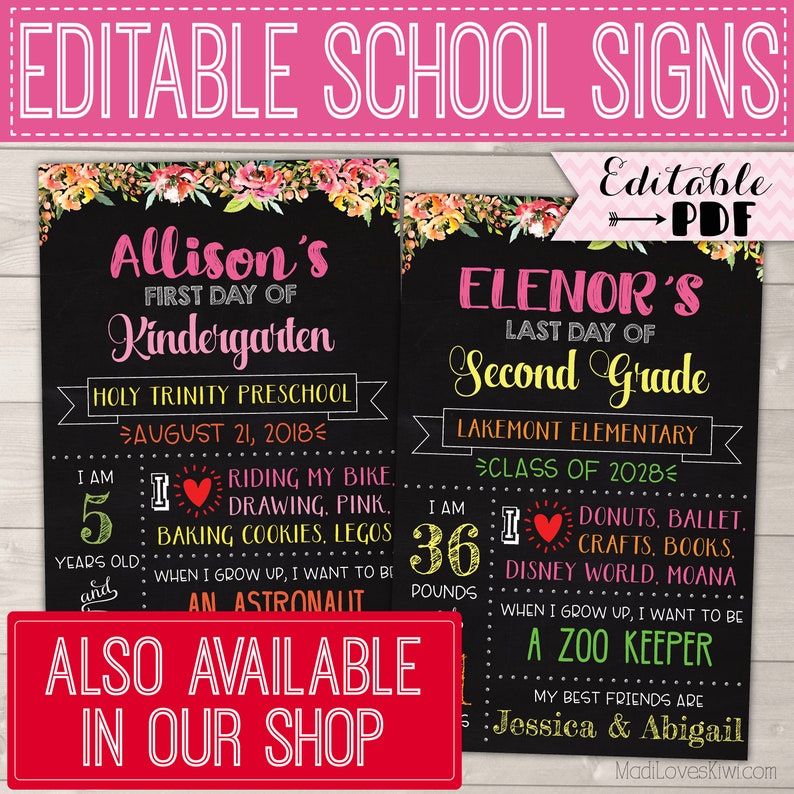 EDITABLE SCHOOL SIGNS
Editable
PDF
Allison's
FIRST DAY OF
Kindergarten
HOLY TRINITY PRESCHOOL
AUGUST 21, 2018
I AM
5
YEARS OLD
and
I
RIDING MY BIKE,
DRAWING, PINK,
BAKING COOKIES, LEGOS
WHEN I GROW UP, I WANT TO BE
AN ASTRONAUT
ELENOR'S
LAST DAY OF
Second Grade
LAKEMONT ELEMENTARY
CLASS OF 2028
I AM
36
POUNDS
I
DONUTS, BALLET,
CRAFTS, BOOKS,
DISNEY WORLD, MOANA
WHEN I GROW UP, I WANT TO BE
A ZOO KEEPER
MY BEST FRIENDS ARE
Jessica & Abigail
ALSO AVAILABLE
IN OUR SHOP
MadiLovesKiwi.com